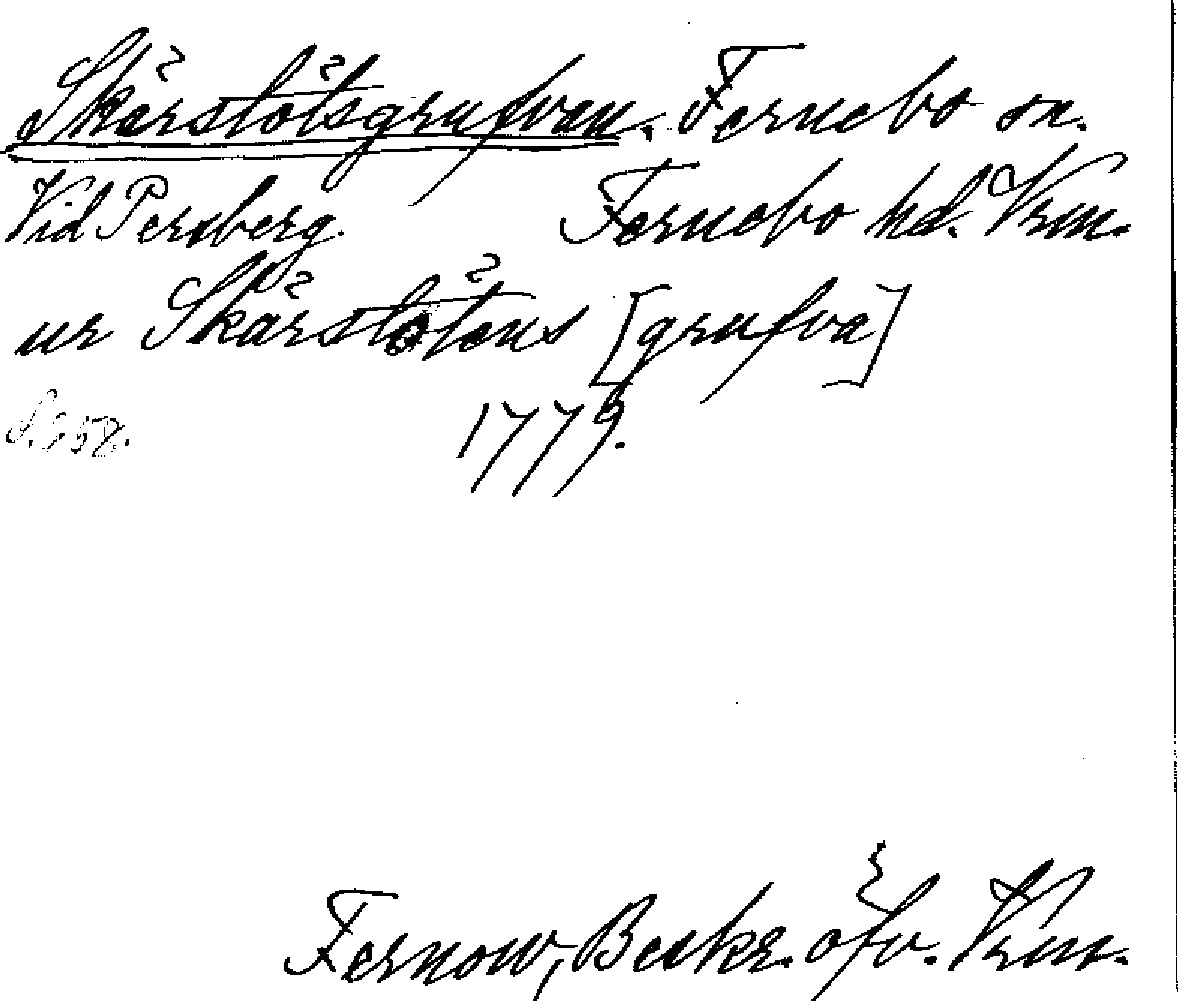 Skärstötsgrufvan. Fernebo sn.
Vid Persberg. Fernebo hd. Vrm.
ur Skärstötens [grufva]
S. 258.
1779.
Fernow, Beskr. öfv. Vrm.